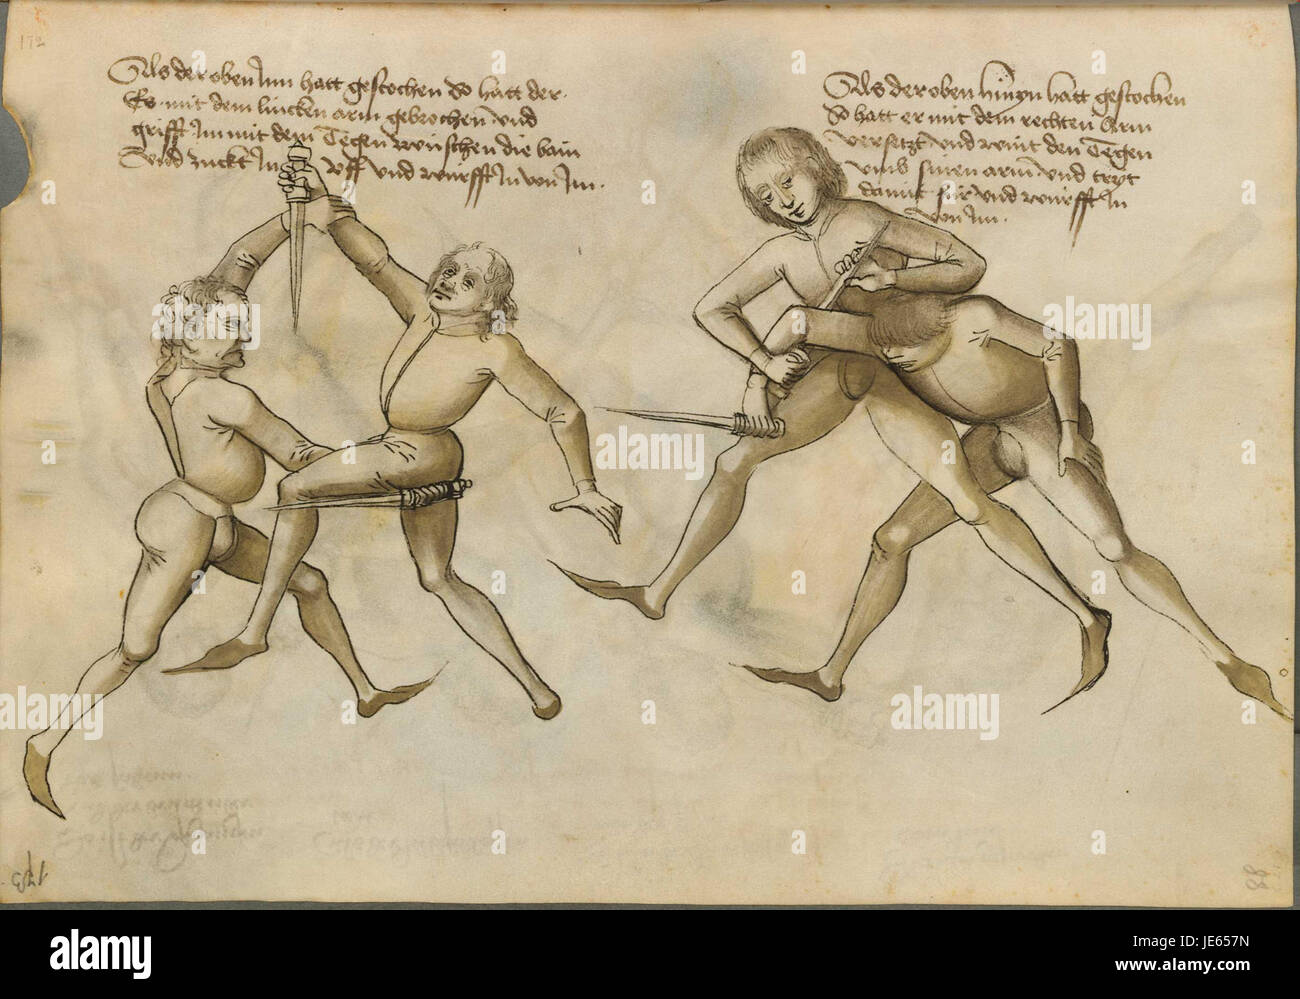 172
Als der oben Inn hatt gestochen So hatt der
Es mit dem lincken arm gebrochen und
grifft Im mit dem Tegen zwuschen die bain
Und zuckt In uff und wurfft In von Im.
Als der oben hinyn hatt gestochen
So hatt er mit dem rechten Arm
versetzt und wint den Tegen
umb sinen arm und tryt
damit für und wurfft In
von Im.
a
alamy stock photo
alamy
Image ID: JE657N
www.alamy.com